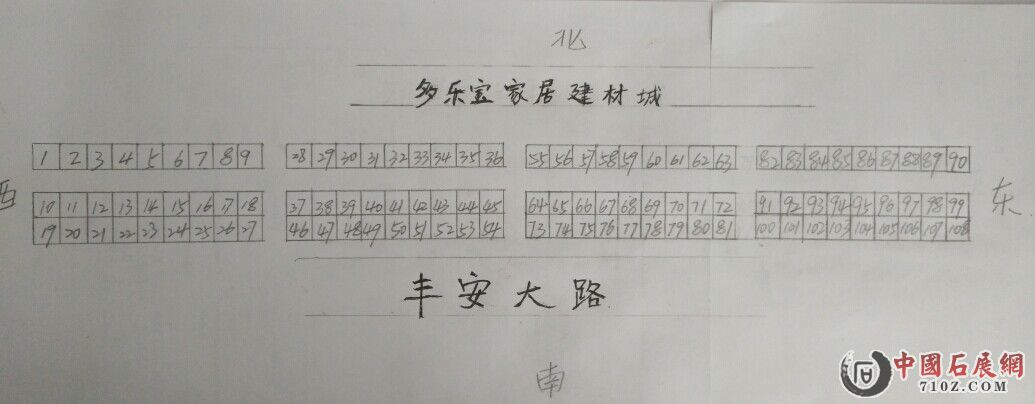 北
多乐宝家居建材城
1 2 3 4 5 6 7 8 9 28 29 30 31 32 33 34 35 36 55 56 57 58 59 60 61 62 63 82 83 84 85 86 87 88 89 90
西 东
10 11 12 13 14 15 16 17 18 37 38 39 40 41 42 43 44 45 64 65 66 67 68 69 70 71 72 91 92 93 94 95 96 97 98 99
19 20 21 22 23 24 25 26 27 46 47 48 49 50 51 52 53 54 73 74 75 76 77 78 79 80 81 100 101 102 103 104 105 106 107 108
丰安大路
南
中國石展網
710Z.COM